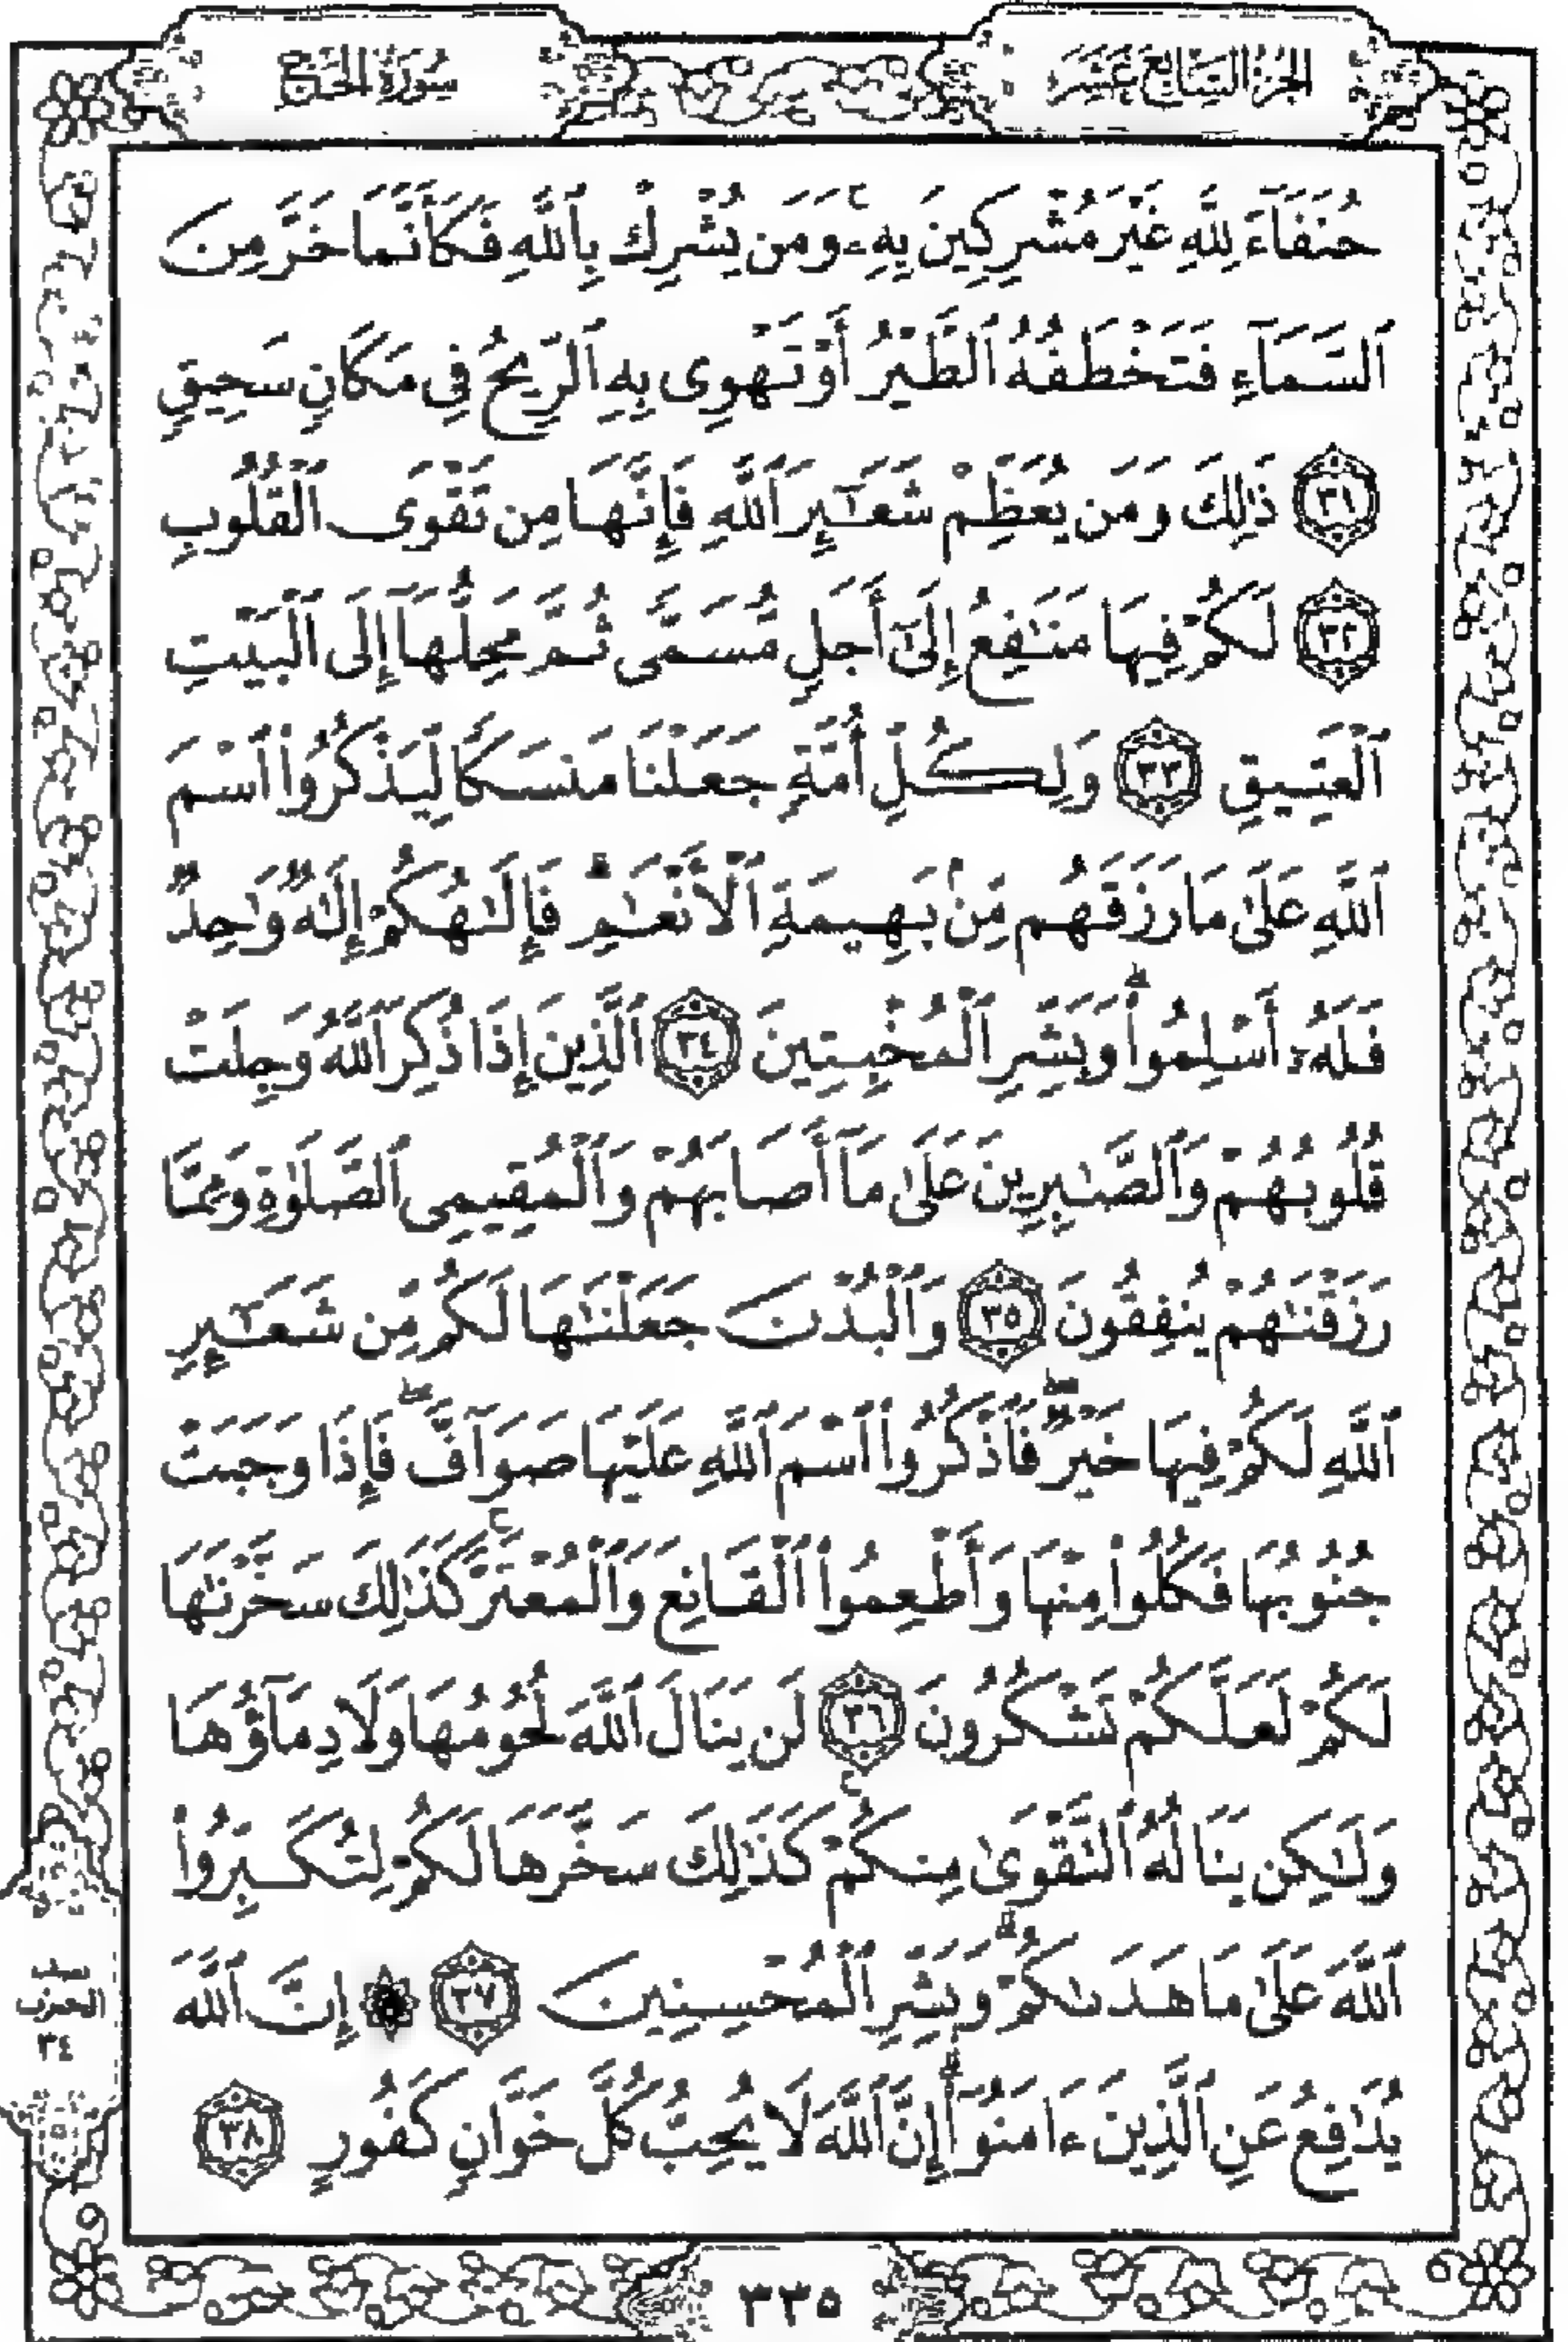 الجزء السابع عشر
سورة الحج
حُنَفَآءَ لِلَّهِ غَيْرَ مُشْرِكِينَ بِهِۦۚ وَمَن يُشْرِكْ بِٱللَّهِ فَكَأَنَّمَا خَرَّ مِنَ
ٱلسَّمَآءِ فَتَخْطَفُهُ ٱلطَّيْرُ أَوْ تَهْوِى بِهِ ٱلرِّيحُ فِى مَكَانٍ سَحِيقٍ
٣١ ذَٰلِكَ وَمَن يُعَظِّمْ شَعَـٰٓئِرَ ٱللَّهِ فَإِنَّهَا مِن تَقْوَى ٱلْقُلُوبِ
٣٢ لَكُمْ فِيهَا مَنَـٰفِعُ إِلَىٰٓ أَجَلٍ مُّسَمًّى ثُمَّ مَحِلُّهَآ إِلَى ٱلْبَيْتِ
ٱلْعَتِيقِ ٣٣ وَلِكُلِّ أُمَّةٍ جَعَلْنَا مَنسَكًا لِّيَذْكُرُوا۟ ٱسْمَ
ٱللَّهِ عَلَىٰ مَا رَزَقَهُم مِّنۢ بَهِيمَةِ ٱلْأَنْعَـٰمِۗ فَإِلَـٰهُكُمْ إِلَـٰهٌ وَٰحِدٌ
فَلَهُۥٓ أَسْلِمُوا۟ۗ وَبَشِّرِ ٱلْمُخْبِتِينَ ٣٤ ٱلَّذِينَ إِذَا ذُكِرَ ٱللَّهُ وَجِلَتْ
قُلُوبُهُمْ وَٱلصَّـٰبِرِينَ عَلَىٰ مَآ أَصَابَهُمْ وَٱلْمُقِيمِى ٱلصَّلَوٰةِ وَمِمَّا
رَزَقْنَـٰهُمْ يُنفِقُونَ ٣٥ وَٱلْبُدْنَ جَعَلْنَـٰهَا لَكُم مِّن شَعَـٰٓئِرِ
ٱللَّهِ لَكُمْ فِيهَا خَيْرٌۖ فَٱذْكُرُوا۟ ٱسْمَ ٱللَّهِ عَلَيْهَا صَوَآفَّۖ فَإِذَا وَجَبَتْ
جُنُوبُهَا فَكُلُوا۟ مِنْهَا وَأَطْعِمُوا۟ ٱلْقَانِعَ وَٱلْمُعْتَرَّۚ كَذَٰلِكَ سَخَّرْنَـٰهَا
لَكُمْ لَعَلَّكُمْ تَشْكُرُونَ ٣٦ لَن يَنَالَ ٱللَّهَ لُحُومُهَا وَلَا دِمَآؤُهَا
وَلَـٰكِن يَنَالُهُ ٱلتَّقْوَىٰ مِنكُمْۚ كَذَٰلِكَ سَخَّرَهَا لَكُمْ لِتُكَبِّرُوا۟
ٱللَّهَ عَلَىٰ مَا هَدَىٰكُمْۗ وَبَشِّرِ ٱلْمُحْسِنِينَ ٣٧ ۞ إِنَّ ٱللَّهَ
يُدَٰفِعُ عَنِ ٱلَّذِينَ ءَامَنُوٓا۟ۗ إِنَّ ٱللَّهَ لَا يُحِبُّ كُلَّ خَوَّانٍ كَفُورٍ ٣٨
نصف
الحزب
٣٤
٣٣٥